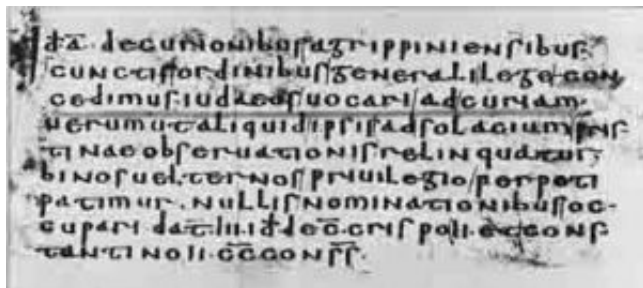 id̄ a. decurionibus agrippiniensibus.
cunctis ordinibus generali lege con
cedimus. iudaeos uocari ad curiam.
uerum ut aliquid ipsis ad solacium pris
tinae obseruationis relinquatur.
binos uel ternos priuilegio perpeti
patimur. nullis nominationibus oc
cupari dat̄. iii. id̄ dec̄. crispo. ii. et cons
tantino. ii. c̄c̄ cons̄s̄.